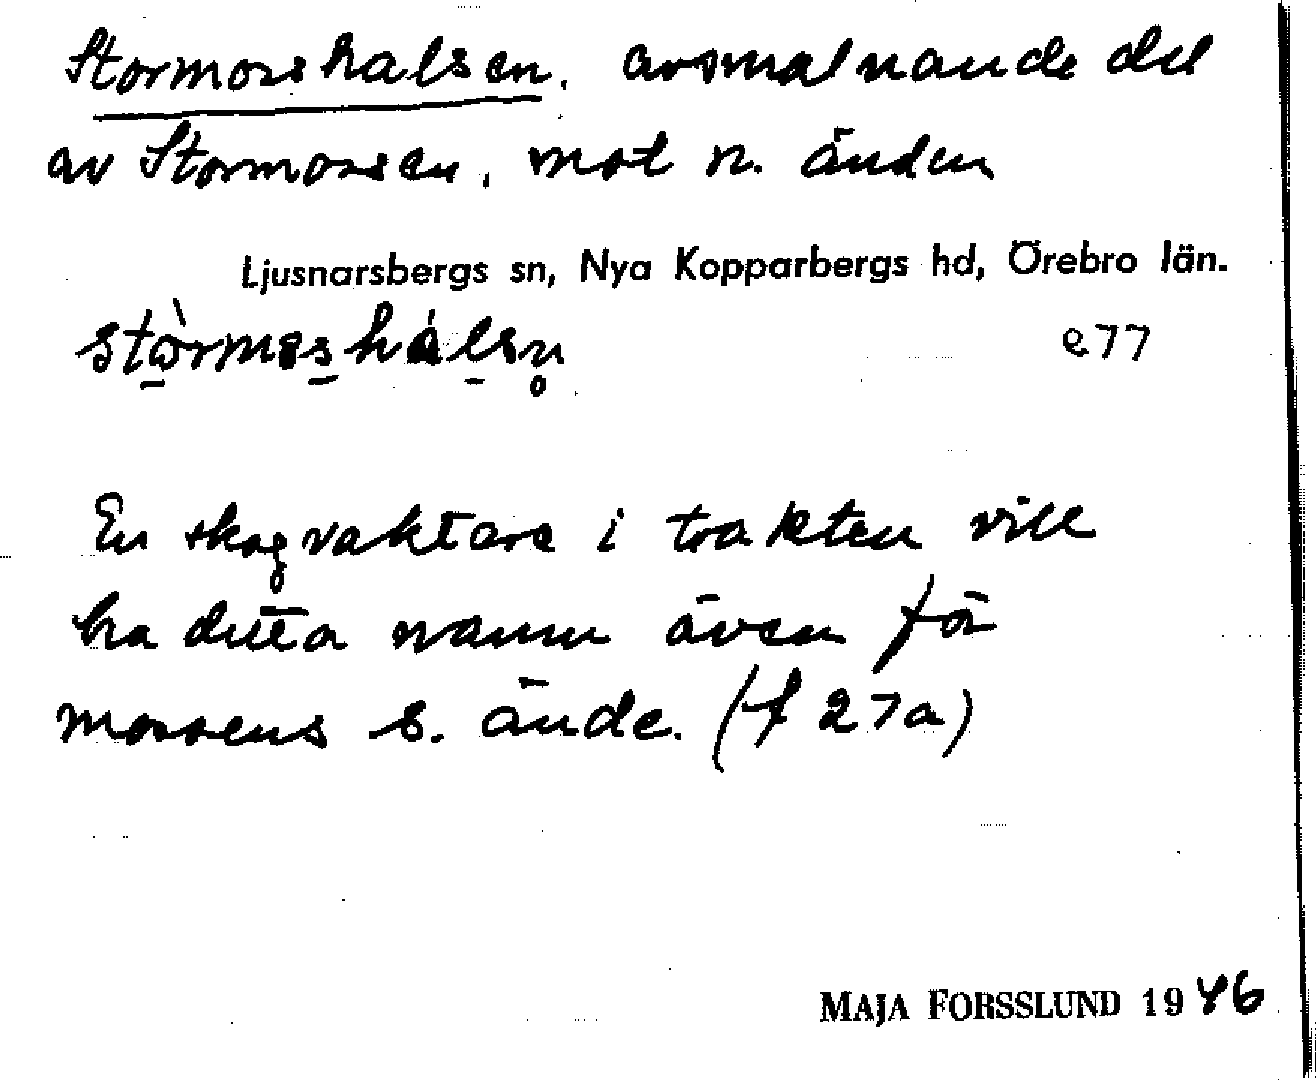 Stormosshalsen, avsmalnande del
av Stormossen, mot n. änden
Ljusnarsbergs sn, Nya Kopparbergs hd, Örebro län.
e77
En skogvaktare i trakten vill
ha detta namn även för
mossens s. ände. (f 27a)
MAJA FORSSLUND 1946